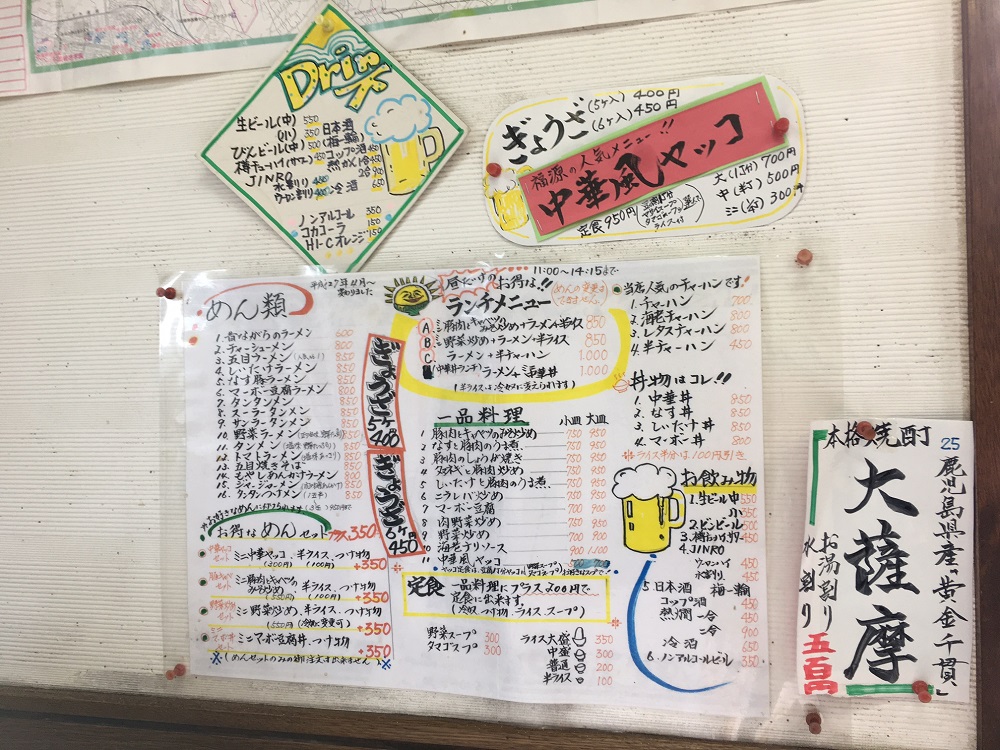 Drink
生ビール(中) 550
(小) 350
びんビール(中) 500
樽チューハイ(サワー) 450
JINRO
水割り 400
ウーロン割り 400
日本酒
(梅一輪)
コップ酒 450
熱かん 1合 450
2合 900
冷酒 650
ノンアルコール 350
コカコーラ 150
HI-Cオレンジ 150
ぎょうざ (5ヶ入) 400円
(6ヶ入) 450円
福源の人気メニュー!!
中華風ヤッコ
定食950円
ライス付
大(1丁分) 700円
中(半丁) 500円
ミニ(1/4丁) 300円
平成27年11月〜
変わりました
めん類
1. 昔ながらのラーメン 600
2. チャーシューメン 800
3. 五目ラーメン(人気No.1) 850
4. しいたけラーメン 850
5. なす豚ラーメン 850
6. マーボー豆腐ラーメン 850
7. タンタンメン 850
8. スーラータンメン 850
9. サンラータンメン 850
10. 野菜ラーメン 850
11. タンメン 850
12. トマトラーメン 850
13. 五目焼きそば 850
14. もやしあんかけラーメン 800
15. ジャージャーメン 850
16. タンタンつけメン 850
お得なめんセット プラス350
ミニ中華ヤッコ、半ライス、つけ物 +350
(300円) (100円)
ミニ豚肉とキャベツのみそ炒め、半ライス、つけ物 +350
(550円) (100円)
ミニ野菜炒め、半ライス、つけ物 +350
(550円) (冷奴に変更可)
ミニマーボ豆腐丼、つけ物 +350
※(めんセットのみの御注文は出来ません)※
ぎょうざ5ヶ400
ぎょうざ6ヶ450円
11:00〜14:15まで
昼だけのお得な!!
ランチメニュー
(めんの変更はできません)
A ミニ豚肉とキャベツのみそ炒め+ラーメン+半ライス 850
B ミニ野菜炒め+ラーメン+半ライス 850
C ラーメン+半チャーハン 1.000
(中華丼ランチ) ラーメン+ミニ中華丼 1.000
(半ライスは冷奴に変えられます)
一品料理 小皿 大皿
1 豚肉とキャベツのみそ炒め 750 950
2 なすと豚肉のうま煮 750 950
3 豚肉のしょうが焼き 750 950
4 タマネギと豚肉炒め 750 950
5 しいたけと豚肉のうま煮 750 950
6 ニラレバ炒め 750 950
7 マーボー豆腐 700 900
8 肉野菜炒め 750 950
9 野菜炒め 700 900
10 海老チリソース 900 1100
11 中華風ヤッコ
定食 一品料理にプラス200円で
定食に出来ます
(冷奴、つけ物、ライス、スープ)
野菜スープ 300
タマゴスープ 300
ライス大盛 350
中盛 300
普通 200
半ライス 100
当店人気のチャーハンです!
1. チャーハン 700
2. 海老チャーハン 800
3. レタスチャーハン 800
4. 半チャーハン 450
丼物はコレ!!
1. 中華丼 850
2. なす丼 850
3. しいたけ丼 850
4. マーボー丼 800
※ライス半分は100円引き
お飲み物
1. 生ビール中 550
小 350
2. ビンビール 500
3. 樽
4. JINRO
ウーロンハイ
水割り
5 日本酒 梅一輪
コップ酒 450
熱燗 一合 450
二合 900
冷酒 650
6. ノンアルコールビール 350
本格焼酎
25
鹿児島県産〝黄金千貫〟
大薩摩
お湯割り
水割り 五百円